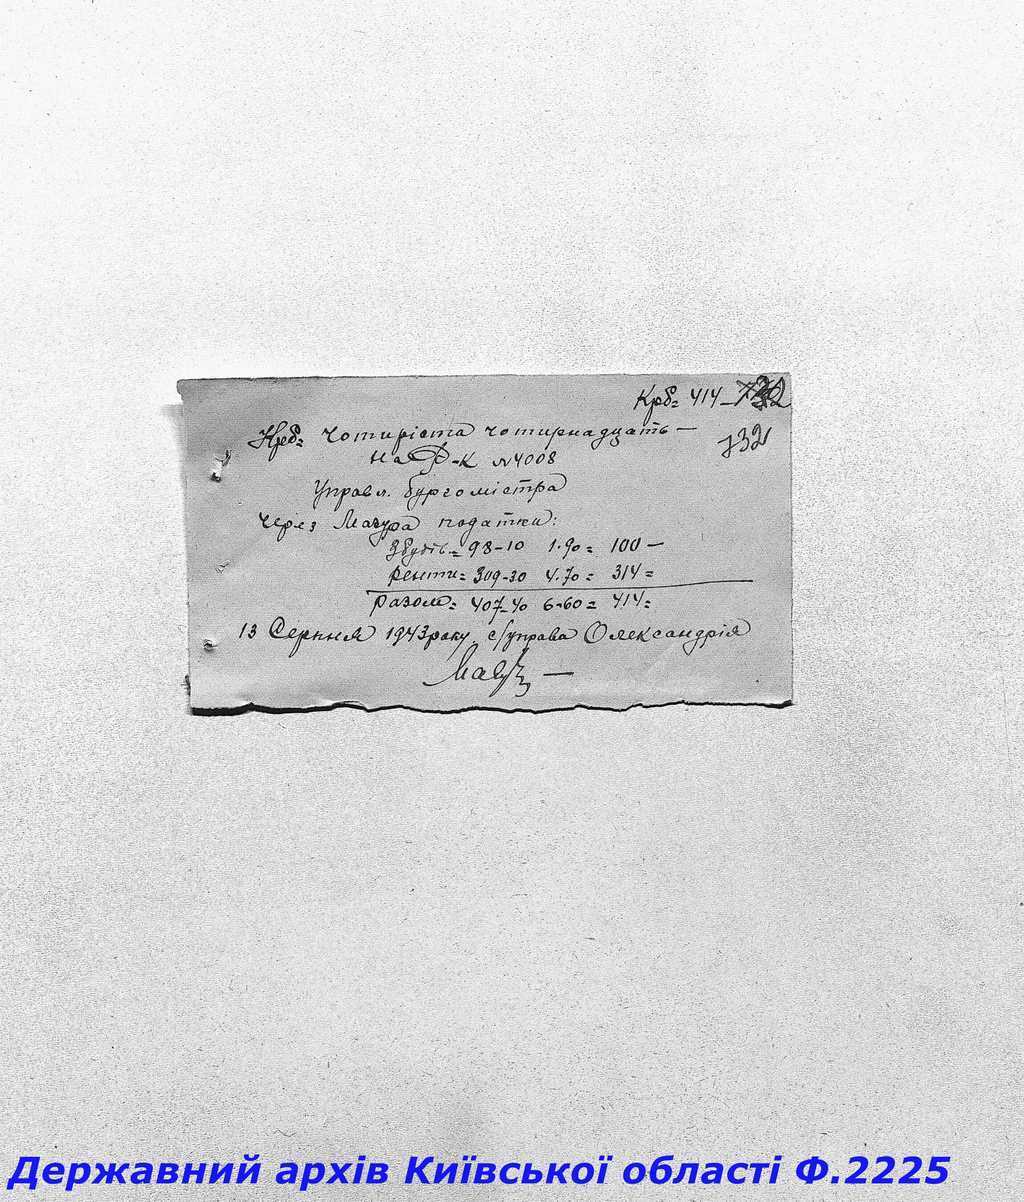 Крб= 414-
732
Крб= Чотиріста чотирнадцять —
на Ф-к №4008
Управл. бургомістра
Через Мазура податки:
98-10 1.90= 100 —
Ренти= 309-30 4.70= 314=
Разом= 407-40 6-60= 414=
13 Серпня 1943 року, с/управа Олександрія
Державний архів Київської області Ф.2225